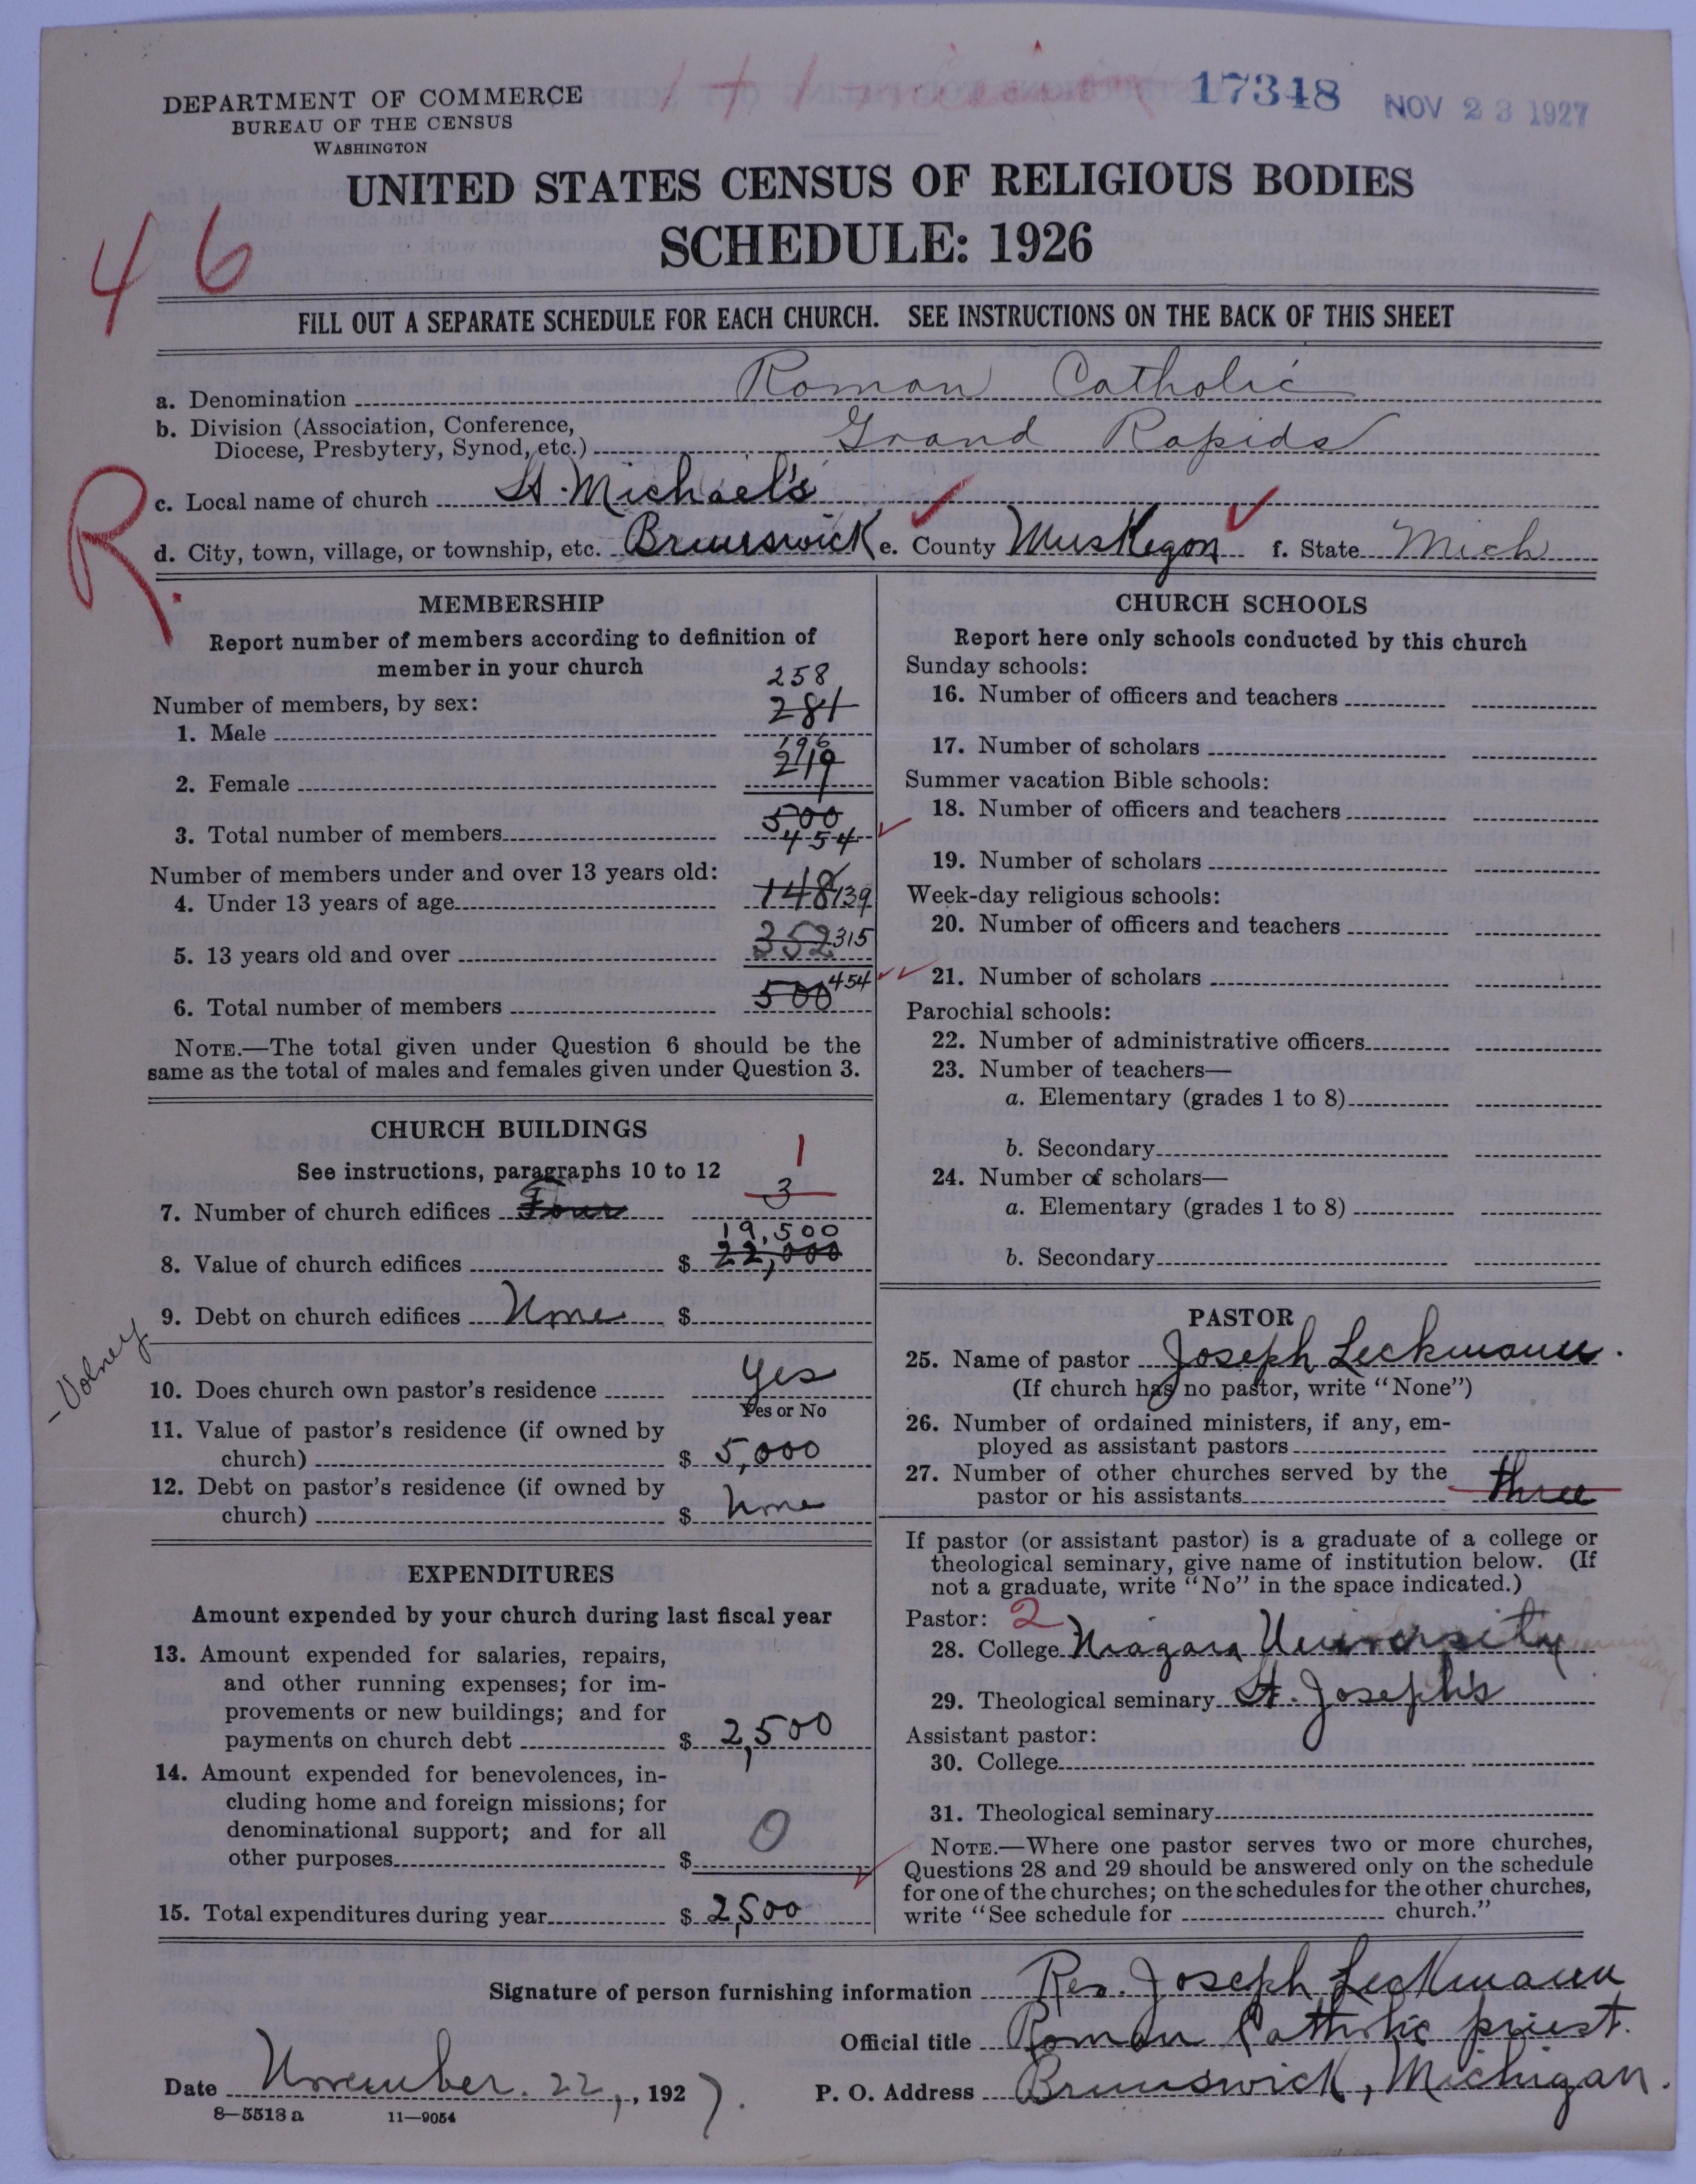 17348
NOV 23 1927
DEPARTMENT OF COMMERCE
BUREAU OF THE CENSUS
WASHINGTON
UNITED STATES CENSUS OF RELIGIOUS BODIES
SCHEDULE: 1926
46
FILL OUT A SEPARATE SCHEDULE FOR EACH CHURCH. SEE INSTRUCTIONS ON THE BACK OF THIS SHEET
a. Denomination Roman Catholic
b. Division (Association, Conference,
Diocese, Presbytery, Synod, etc.) Grand Rapids
R.
c. Local name of church St. Michael's
d. City, town, village, or township, etc. Brunswick e. County Muskegon f. State Mich
MEMBERSHIP
Report number of members according to definition of
member in your church
Number of members, by sex:
258
1. Male 281
196
2. Female 219
500
3. Total number of members 454
Number of members under and over 13 years old:
4. Under 13 years of age 148 139
5. 13 years old and over 352 315
6. Total number of members 500 454
NOTE.—The total given under Question 6 should be the
same as the total of males and females given under Question 3.
CHURCH BUILDINGS
See instructions, paragraphs 10 to 12
1
7. Number of church edifices Four 3
19,500
8. Value of church edifices $ 22,000
9. Debt on church edifices None $
-Volney
10. Does church own pastor's residence Yes
Yes or No
11. Value of pastor's residence (if owned by
church) $ 5,000
12. Debt on pastor's residence (if owned by
church) $ None
EXPENDITURES
Amount expended by your church during last fiscal year
13. Amount expended for salaries, repairs,
and other running expenses; for im-
provements or new buildings; and for
payments on church debt $ 2,500
14. Amount expended for benevolences, in-
cluding home and foreign missions; for
denominational support; and for all
other purposes $ 0
15. Total expenditures during year $ 2,500
CHURCH SCHOOLS
Report here only schools conducted by this church
Sunday schools:
16. Number of officers and teachers
17. Number of scholars
Summer vacation Bible schools:
18. Number of officers and teachers
19. Number of scholars
Week-day religious schools:
20. Number of officers and teachers
21. Number of scholars
Parochial schools:
22. Number of administrative officers
23. Number of teachers—
a. Elementary (grades 1 to 8)
b. Secondary
24. Number of scholars—
a. Elementary (grades 1 to 8)
b. Secondary
PASTOR
25. Name of pastor Joseph Leckmann.
(If church has no pastor, write "None")
26. Number of ordained ministers, if any, em-
ployed as assistant pastors
27. Number of other churches served by the
pastor or his assistants three
If pastor (or assistant pastor) is a graduate of a college or
theological seminary, give name of institution below. (If
not a graduate, write "No" in the space indicated.)
Pastor: 2
28. College Niagara University
29. Theological seminary St. Joseph's
Assistant pastor:
30. College
31. Theological seminary
NOTE.—Where one pastor serves two or more churches,
Questions 28 and 29 should be answered only on the schedule
for one of the churches; on the schedules for the other churches,
write "See schedule for church."
Signature of person furnishing information Rev. Joseph Leckmann
Official title Roman Catholic priest.
Date November. 22, , 1927. P. O. Address Brunswick, Michigan.
8—5518 a 11—9054